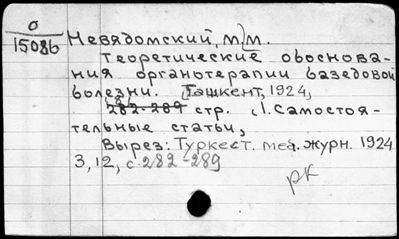 О
15086
Невядомский, М]М.
Теоретические обоснова-
ния органотерапии базедовой
болезни. [Ташкент, 1924,
(8)
282-289 стр. (1.Самостоя-
тельные статьи,
Вырез: Туркест. мед. журн. 1924
3, 12, с 282-289
рк